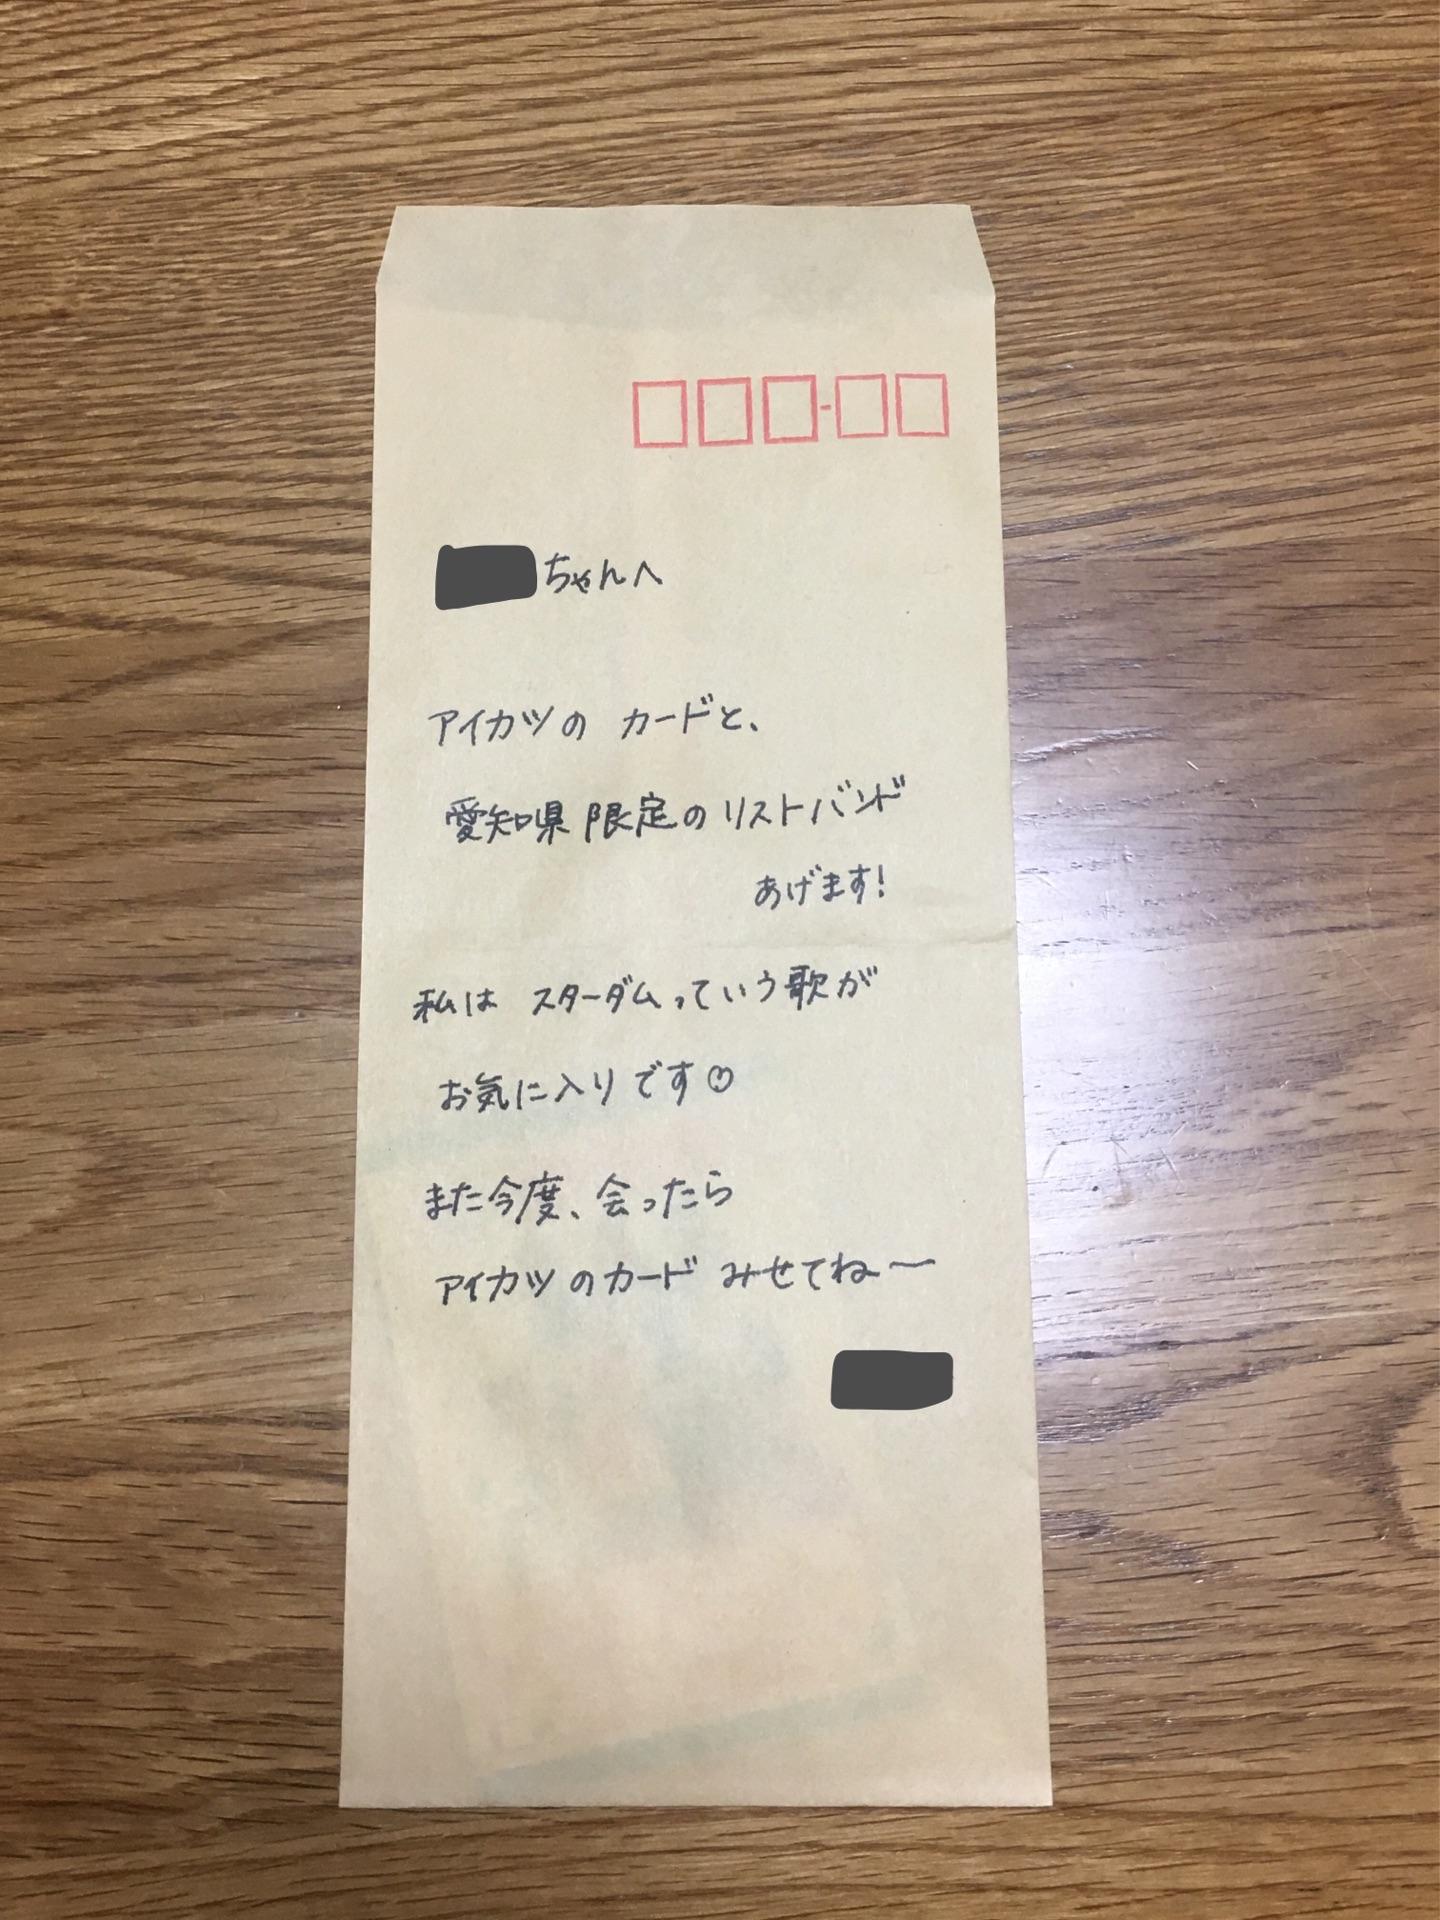 ちゃんへ
アイカツの カードと、
愛知県限定のリストバンド
あげます!
私は スターダムっていう歌が
お気に入りです♡
また今度、会ったら
アイカツのカード みせてね〜